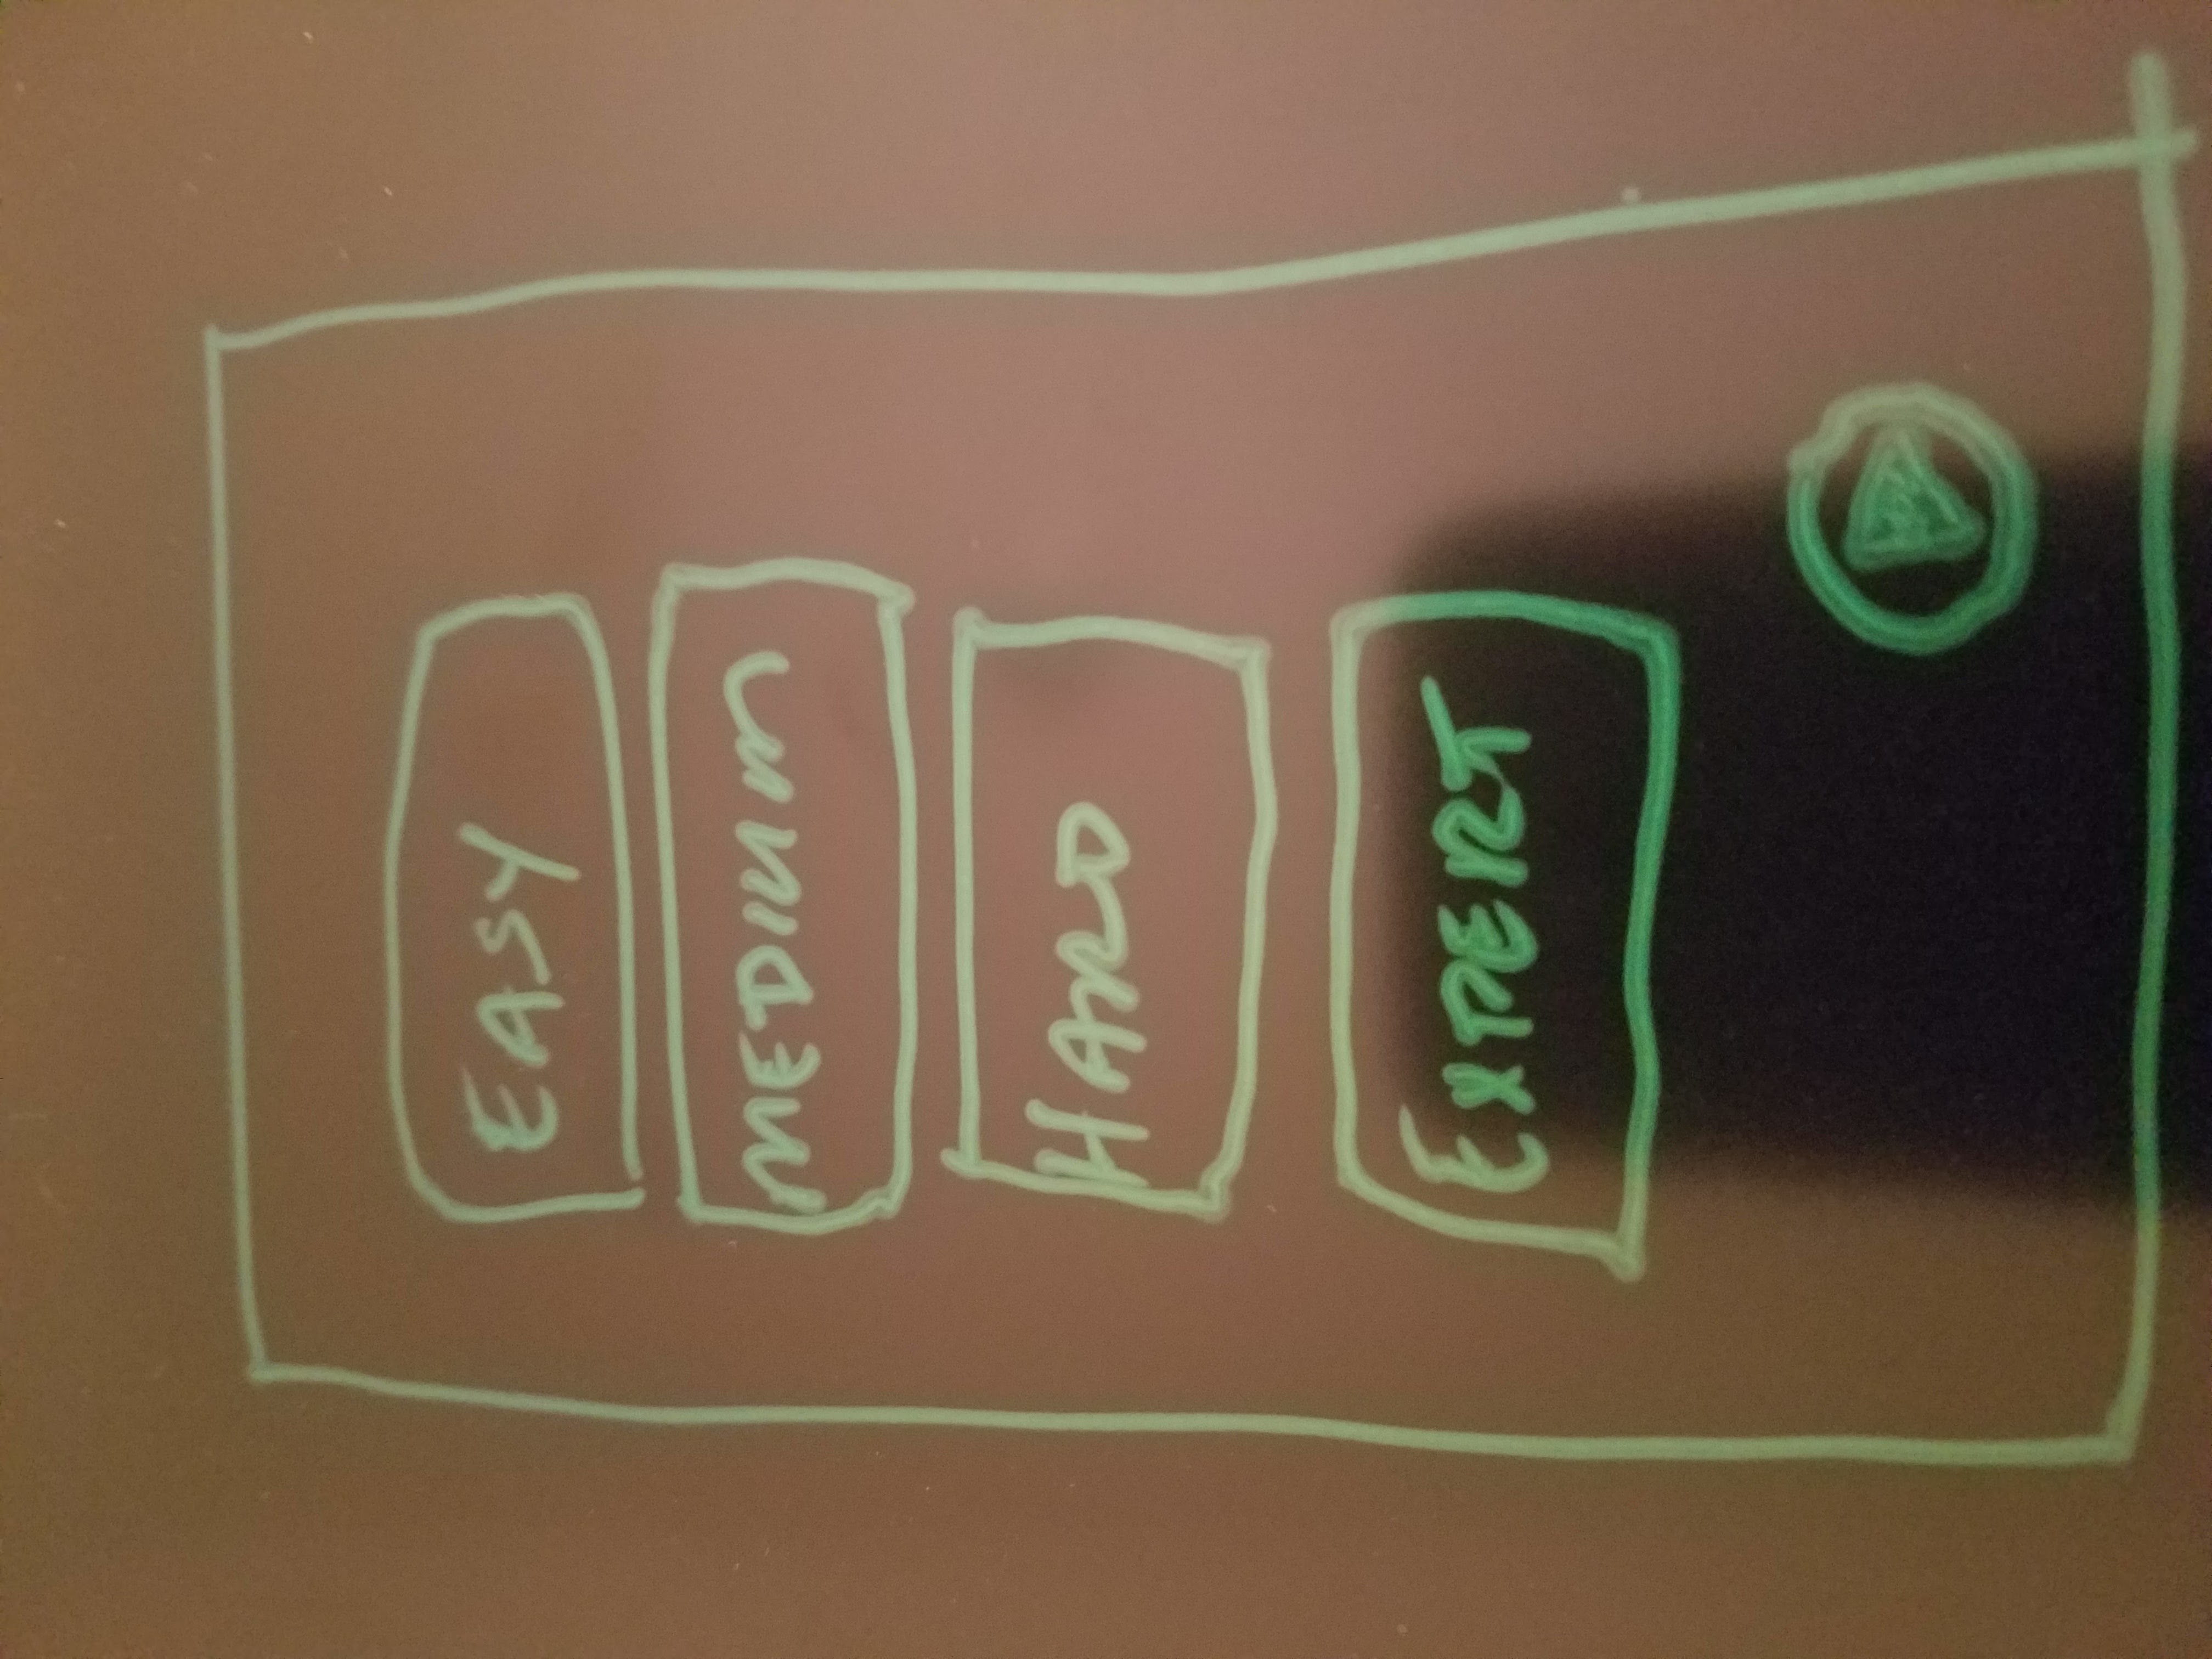 EASY
MEDIUM
HARD
EXPERT